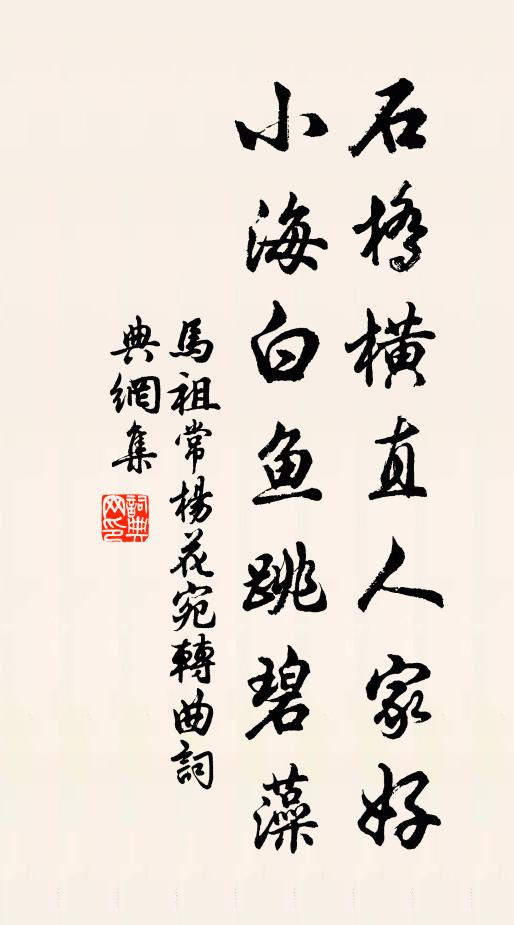 石橋橫直人家好
小海白鱼跳碧藻
馬祖常楊花宛轉曲詞
典網集
詞典网印